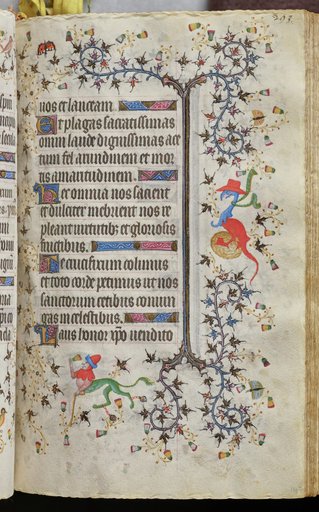 307.
uos et lanceam.
Et plagas sacratissimas
omni laude dignissimas ace
tum fel arundinem et mor
tis amaritudinem.
Hec omnia nos sacient
et dulciter inebrient nos re
pleant virtutib; et gloriosis
fructibus.
Te crucifixum colimus
et toto corde petimus ut nos
sanctorum cetibus coniun
gas in celestibus.
Laus honor xpo uendito